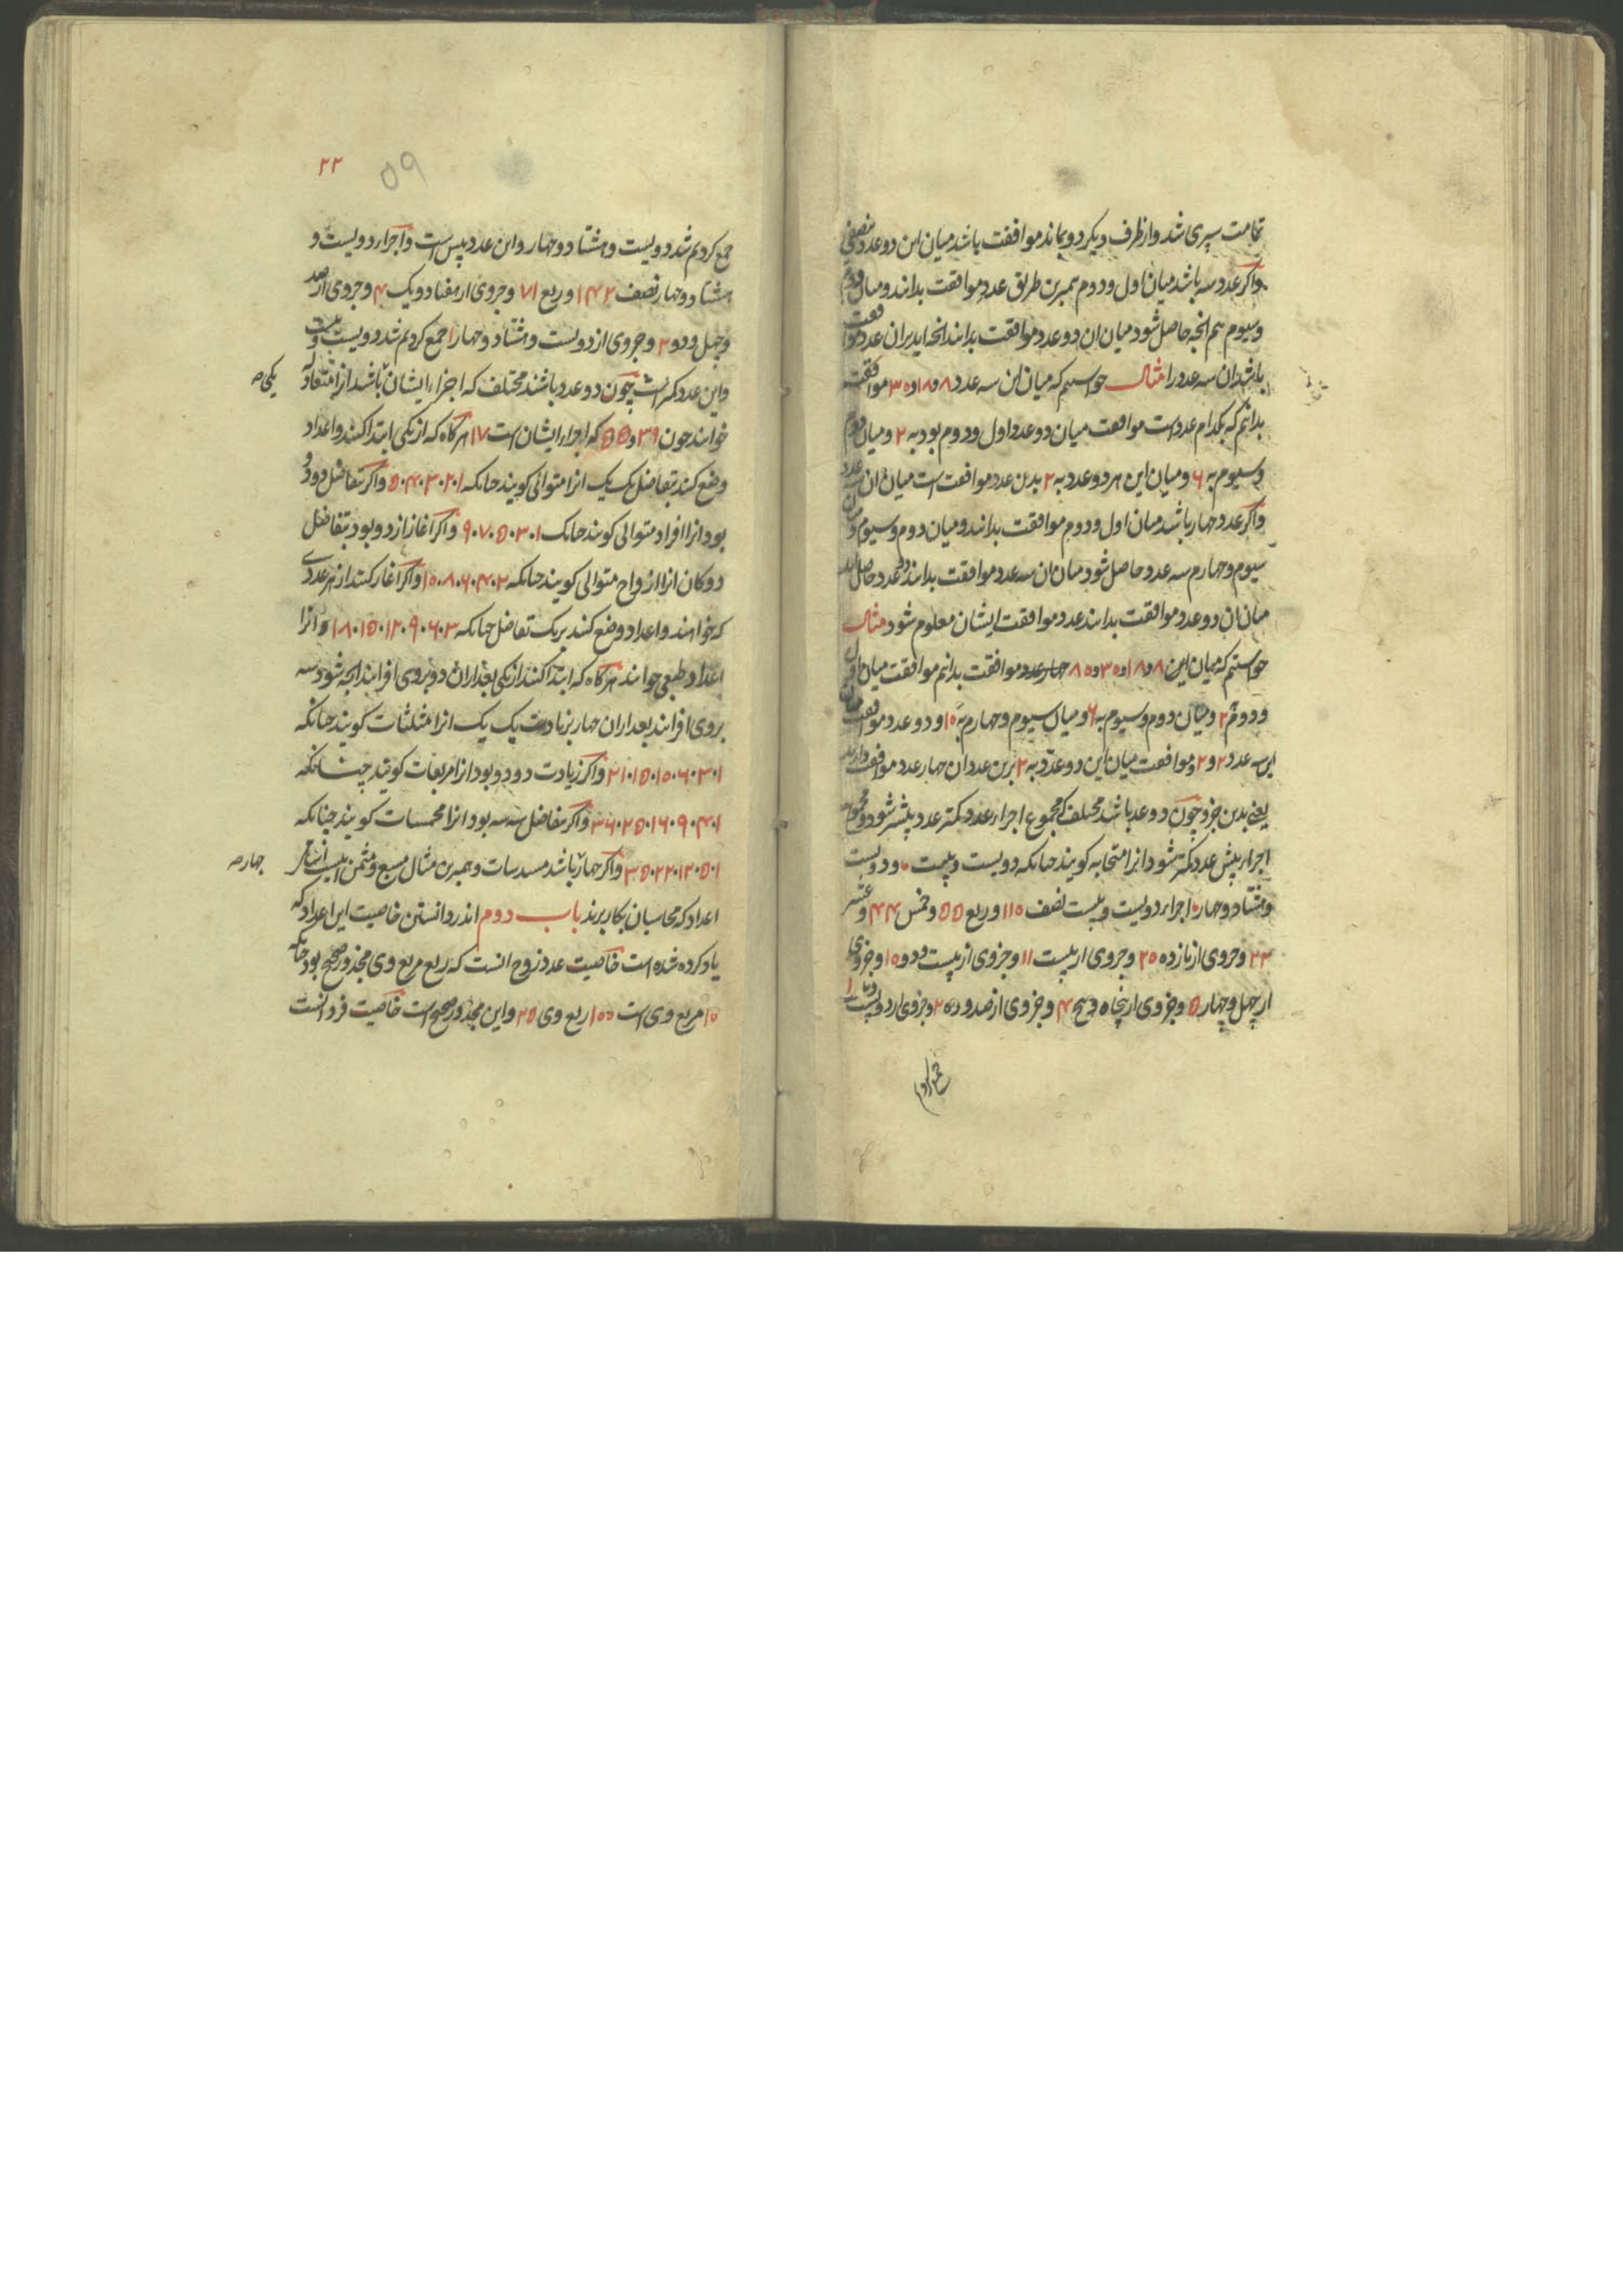 تمامت سپری شد و از طرف دیکر دو بماند موافقت باشد میان این دو عدد بنصفی
و اکر عدد سه باشد میان اول و دوم همبرین طریق عدد موافقت بدانند و میان دوم
و سیوم هم انچه حاصل شود میان ان دو عدد موافقت بدانند انچه اید بران عدد موافقت
باشد ان سه عدد را مثال خواستیم که میان این سه عدد ۸ و ۱۸ و ۳۰ موافقت
بدانیم که بکدام عدد است موافقت میان دو عدد اول و دوم بود به ۲ و میان دوم
و سیوم به ۶ و میان این هر دو عدد به ۲ بدین عدد موافقت است میان ان سه عدد
و اکر عدد چهار باشد میان اول و دوم موافقت بدانند و میان دوم و سیوم و میان
سیوم و چهارم سه عدد حاصل شود میان ان سه عدد موافقت بدانند دو عدد حاصل اید
میان ان دو عدد موافقت بدانند عدد موافقت ایشان معلوم شود مثال
خواستیم که میان این ۸ و ۱۸ و ۳۰ و ۸۰ چهار عدد موافقت بدانیم موافقت میان اول
و دوم ۲ و میان دوم و سیوم به ۶ و میان سیوم و چهارم به ۱۰ و دو عدد موافقت میان
این سه عدد ۲ و ۲ و موافقت میان این دو عدد به ۲ برین عدد ان چهار عدد موافقت دارند
یعنی بدین جزو چون دو عدد باشد مختلف که مجموع اجزاء عدد کمتر عدد بیشتر شود و مجموع
اجزاء بیش عدد کمتر شود انرا متحابه کویند چنانکه دویست و بیست و دویست
و هشتاد و چهار اجزاء دویست و بیست نصف ۱۱۰ و ربع ۵۵ و خمس ۴۴ و عشر
۲۲ و جزوی از یازده ۲۰ و جزوی از بیست ۱۱ و جزوی از بیست و دو ۱۰ و جزوی
از چهل و چهار ۵ و جزوی از پنجاه و پنج ۴ و جزوی از صد و ده ۲ و جزوی از دویست و بیست ۱
جمع کردیم
۲۲
۵۹
جمع کردیم شد دویست و هشتاد و چهار و این عدد بیس است و اجزاء دویست و
هشتاد و چهار نصف ۱۴۲ و ربع ۷۱ و جزوی از هفتاد و یک ۴ و جزوی از صد
و چهل و دو ۲ و جزوی از دویست و هشتاد و چهار ۱ جمع کردیم شد دویست و بیست
و این عدد کمتر است چون دو عدد باشند مختلف که اجزاء ایشان باشد انرا متعادله
یکی صه
خوانند چون ۳۹ و ۵۵ که اجزاء ایشان است ۱۷ هرکاه که از یکی ابتدا کنند و اعداد
وضع کنند بتفاضل یک یک انرا متوالی کویند چنانکه ۱۰۲۰۳۰۴۰۵ و اکر تفاضل دو دو
بود انرا افراد متوالی کویند چنانک ۱۰۳۰۵۰۷۰۹ و اکر اغاز از دو بود بتفاضل
دوکان انرا ازواج متوالی کویند چنانکه ۲۰۴۰۶۰۸۰۱۰ و اکر اغاز کنند از هر عددی
که خواهند و اعداد وضع کنند بر یک تفاضل چنانکه ۳۰۶۰۹۰۱۲۰۱۵۰۱۸ و انرا
اعداد طبعی خوانند هرکاه که ابتدا کنند از یکی بعد از ان دو بروی افزایند انچه شود سه
بروی افزایند بعد از ان چهار بزیادت یک یک انرا مثلثات کویند چنانکه
۱۰۳۰۶۰۱۰۰۱۵۰۲۱ و اکر زیادت دو دو بود انرا مربعات کویند چنانکه
۱۰۴۰۹۰۱۶۰۲۵۰۳۶ و اکر تفاضل سه سه بود انرا مخمسات کویند چنانکه
۱۰۵۰۱۲۰۲۲۰۳۵ و اکر چهار باشد مسدسات و همبرین مثال مسبع و مثمن
چهار صه
اعداد که محاسبان بکار برند باب دوم اندر دانستن خاصیت این اعداد که
یاد کرده شده است خاصیت عدد زوج انست که ربع مربع وی مجذور صحیح بود چنانکه
۱۰ مربع وی است ۱۰۰ ربع وی ۲۵ و این مجذور صحیح است خاصیت فرد انست